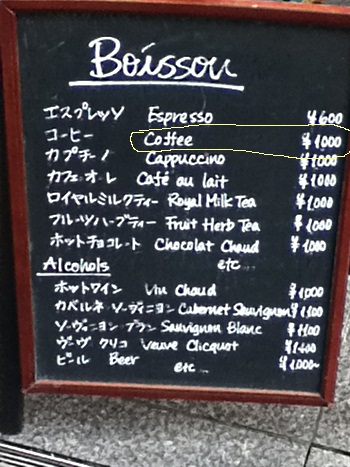 Boisson
エスプレッソ Espresso ¥600
コーヒー Coffee ¥1000
カプチーノ Cappuccino ¥1000
カフェ・オ・レ Café au lait ¥1000
ロイヤルミルクティー Royal Milk Tea ¥1000
フルーツハーブティー Fruit Herb Tea ¥1000
ホットチョコレート Chocolat Chaud ¥1000
etc...
Alcohols
ホットワイン Vin Chaud ¥1000
カベルネ ソーヴィニヨン Cabernet Sauvignon ¥1100
ソーヴィニヨン ブラン Sauvignon Blanc ¥1100
ヴーヴ クリコ Veuve Clicquot ¥1400
ビール Beer ¥1000~
etc...